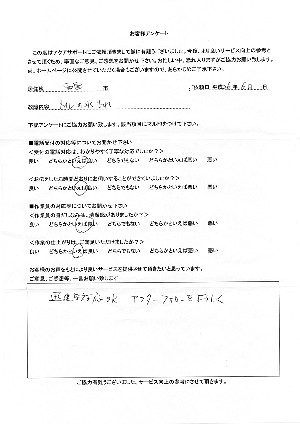 お客様アンケート
この度はアクアサポートにご依頼頂きまして誠に有難うございました。今後、より良いサービス向上の参考と
させて頂くため、率直なご意見、ご感想をお聞かせ下さい。お忙しい中、恐れ入りますがご協力お願い致します。
尚、ホームページに公開をさせていただく場合もございますので、あらかじめご了承下さい。
市
平成26年6月 日
下記アンケートにご協力お願い致します。該当項目に丸印を付けて下さい。
■電話受付の対応等についてお聞かせ下さい
良い どちらかといえば良い どちらでもない どちらかといえば悪い 悪い
良い どちらかといえば良い どちらでもない どちらかといえば悪い 悪い
■作業員の対応等についてお聞かせ下さい
良い どちらかといえば良い どちらでもない どちらかといえば悪い 悪い
＜作業の仕上がりは、ご満足いただけましたか？＞
良い どちらかといえば良い どちらでもない どちらかといえば悪い 悪い
お客様のお声をもとにより良いサービスを提供させて頂きたいと思っています。
ご意見、ご感想等、一言お願い致します
迅速な対応OK アフターフォローをよろしく
ご協力有難うございました。サービス向上の参考にさせて頂きます。